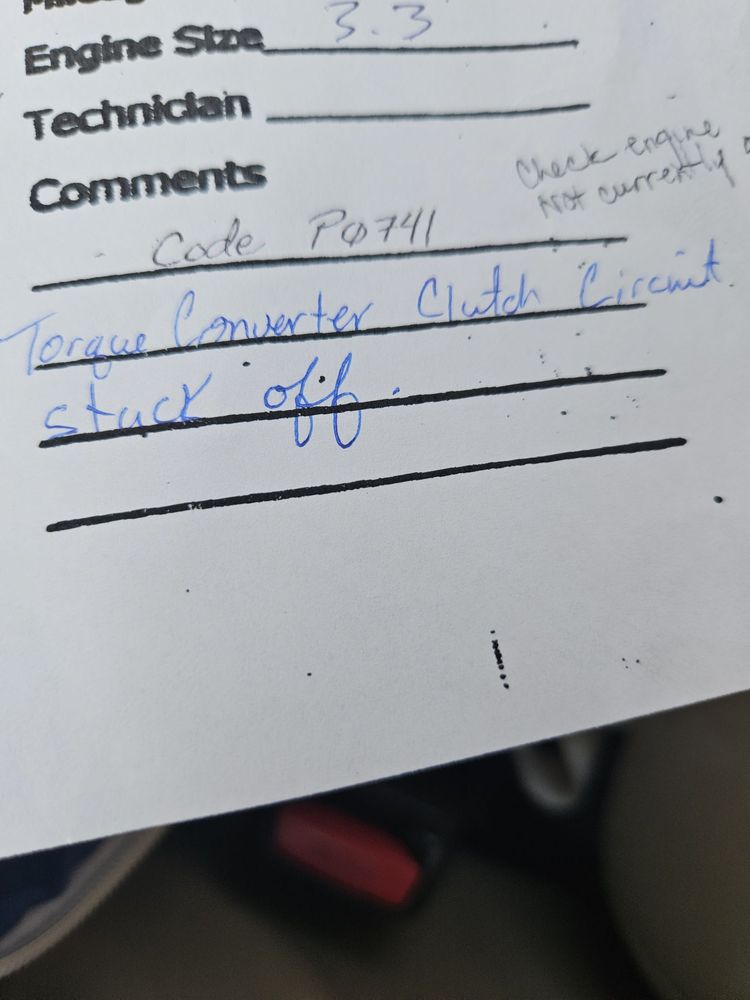 Engine Size 3.3
Technician
Comments
Check engine
Not currently
Code P0741
Torque Converter Clutch Circuit
stuck off.